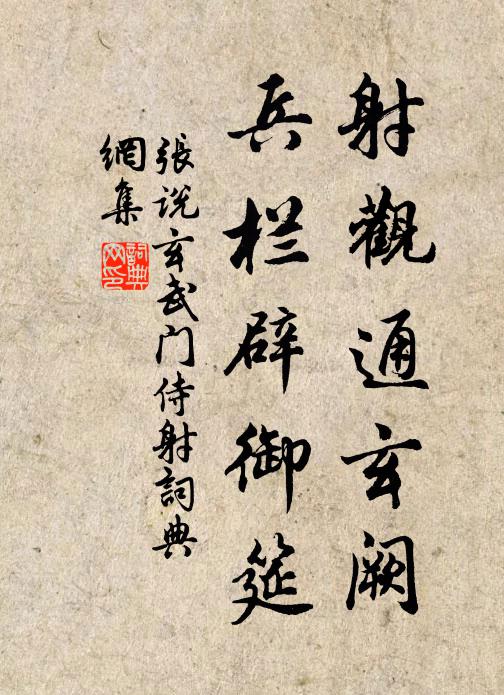 射觀通玄阙
兵栏辟御筵
張说玄武门侍射詞典
網集
詞典
网印